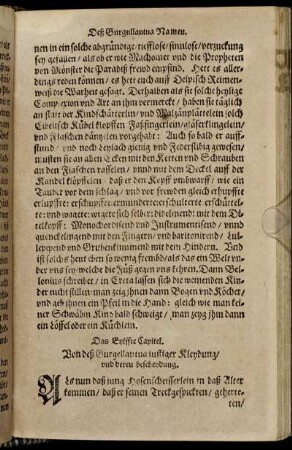 Deß Gurgullantua Namen.
nen in ein solche abgründige/ tiefflose/ sinnlose/ verzuckung
sey gefallen/ als ob er wie Machomet vnd die Propheten
von Mönster die Paradiß freud empfind. Hett es aller-
dings reden können/ es hett euch auff Delpisch Reimen-
weiß die Warheit gesagt. Derhalben als sie solche heylige
Complexion vnd Art an ihm vermerckt/ haben sie täglich
an statt der Kindschätterlin/ vnd
Kübel klopffen
vnd Fläschen dänglen vorgehabt: Auch so bald er auff-
stund/ vnd noch Leylach gienig vnd Federfübig gewesen/
musten sie an allen Ecken mit den Ketten vnd Schrauben
an den Flaschen rasselen/ vnnd mit dem Deckel auff der
Kandel klöpffelen/ daß er den Kopff vmbwarff/ wie ein
Tauber vor dem schlag/ vnd vor frewden gleich erhupffte
erlupffte: erschupffte: ermundert: erschutterte: erschüttel-
te: vnd wagete: wigete sich selber: didelmend: mit dem Di-
telkopff: Monochordisend vnd Instrumentisend/ vnnd
quenckelingend mit den Fingern/ vnd baritonisend/ Lul-
lepipend vnd Gribenkimmend mit dem Hindern. Vnd
ist solchs heut eben so wenig frembd/ als das ein Welt vn-
der vns sey/ welche die Füß gegen vns kehren. Dann Bel-
lonius schreibt/ in Creta lassen sich die weinenden Kin-
der nicht stillen/ man zeig ihnen dann Bogen vnd Köcher/
vnd geb ihnen ein Pfeil in die Hand: gleich wie man kei-
ner Schwäbin Kind bald schweigt/ man zeyg ihm dann
ein Löffel oder ein Küchlein.
Das Eylffte Capitel.
Von deß Gurgellantua lustiger Kleydung/
vnd deren bescheydung.
Als nun daß jung Hosenscheisserlein in daß Alter
kommen/ daß er seinen Treckgespickten/ geherte-
ten/